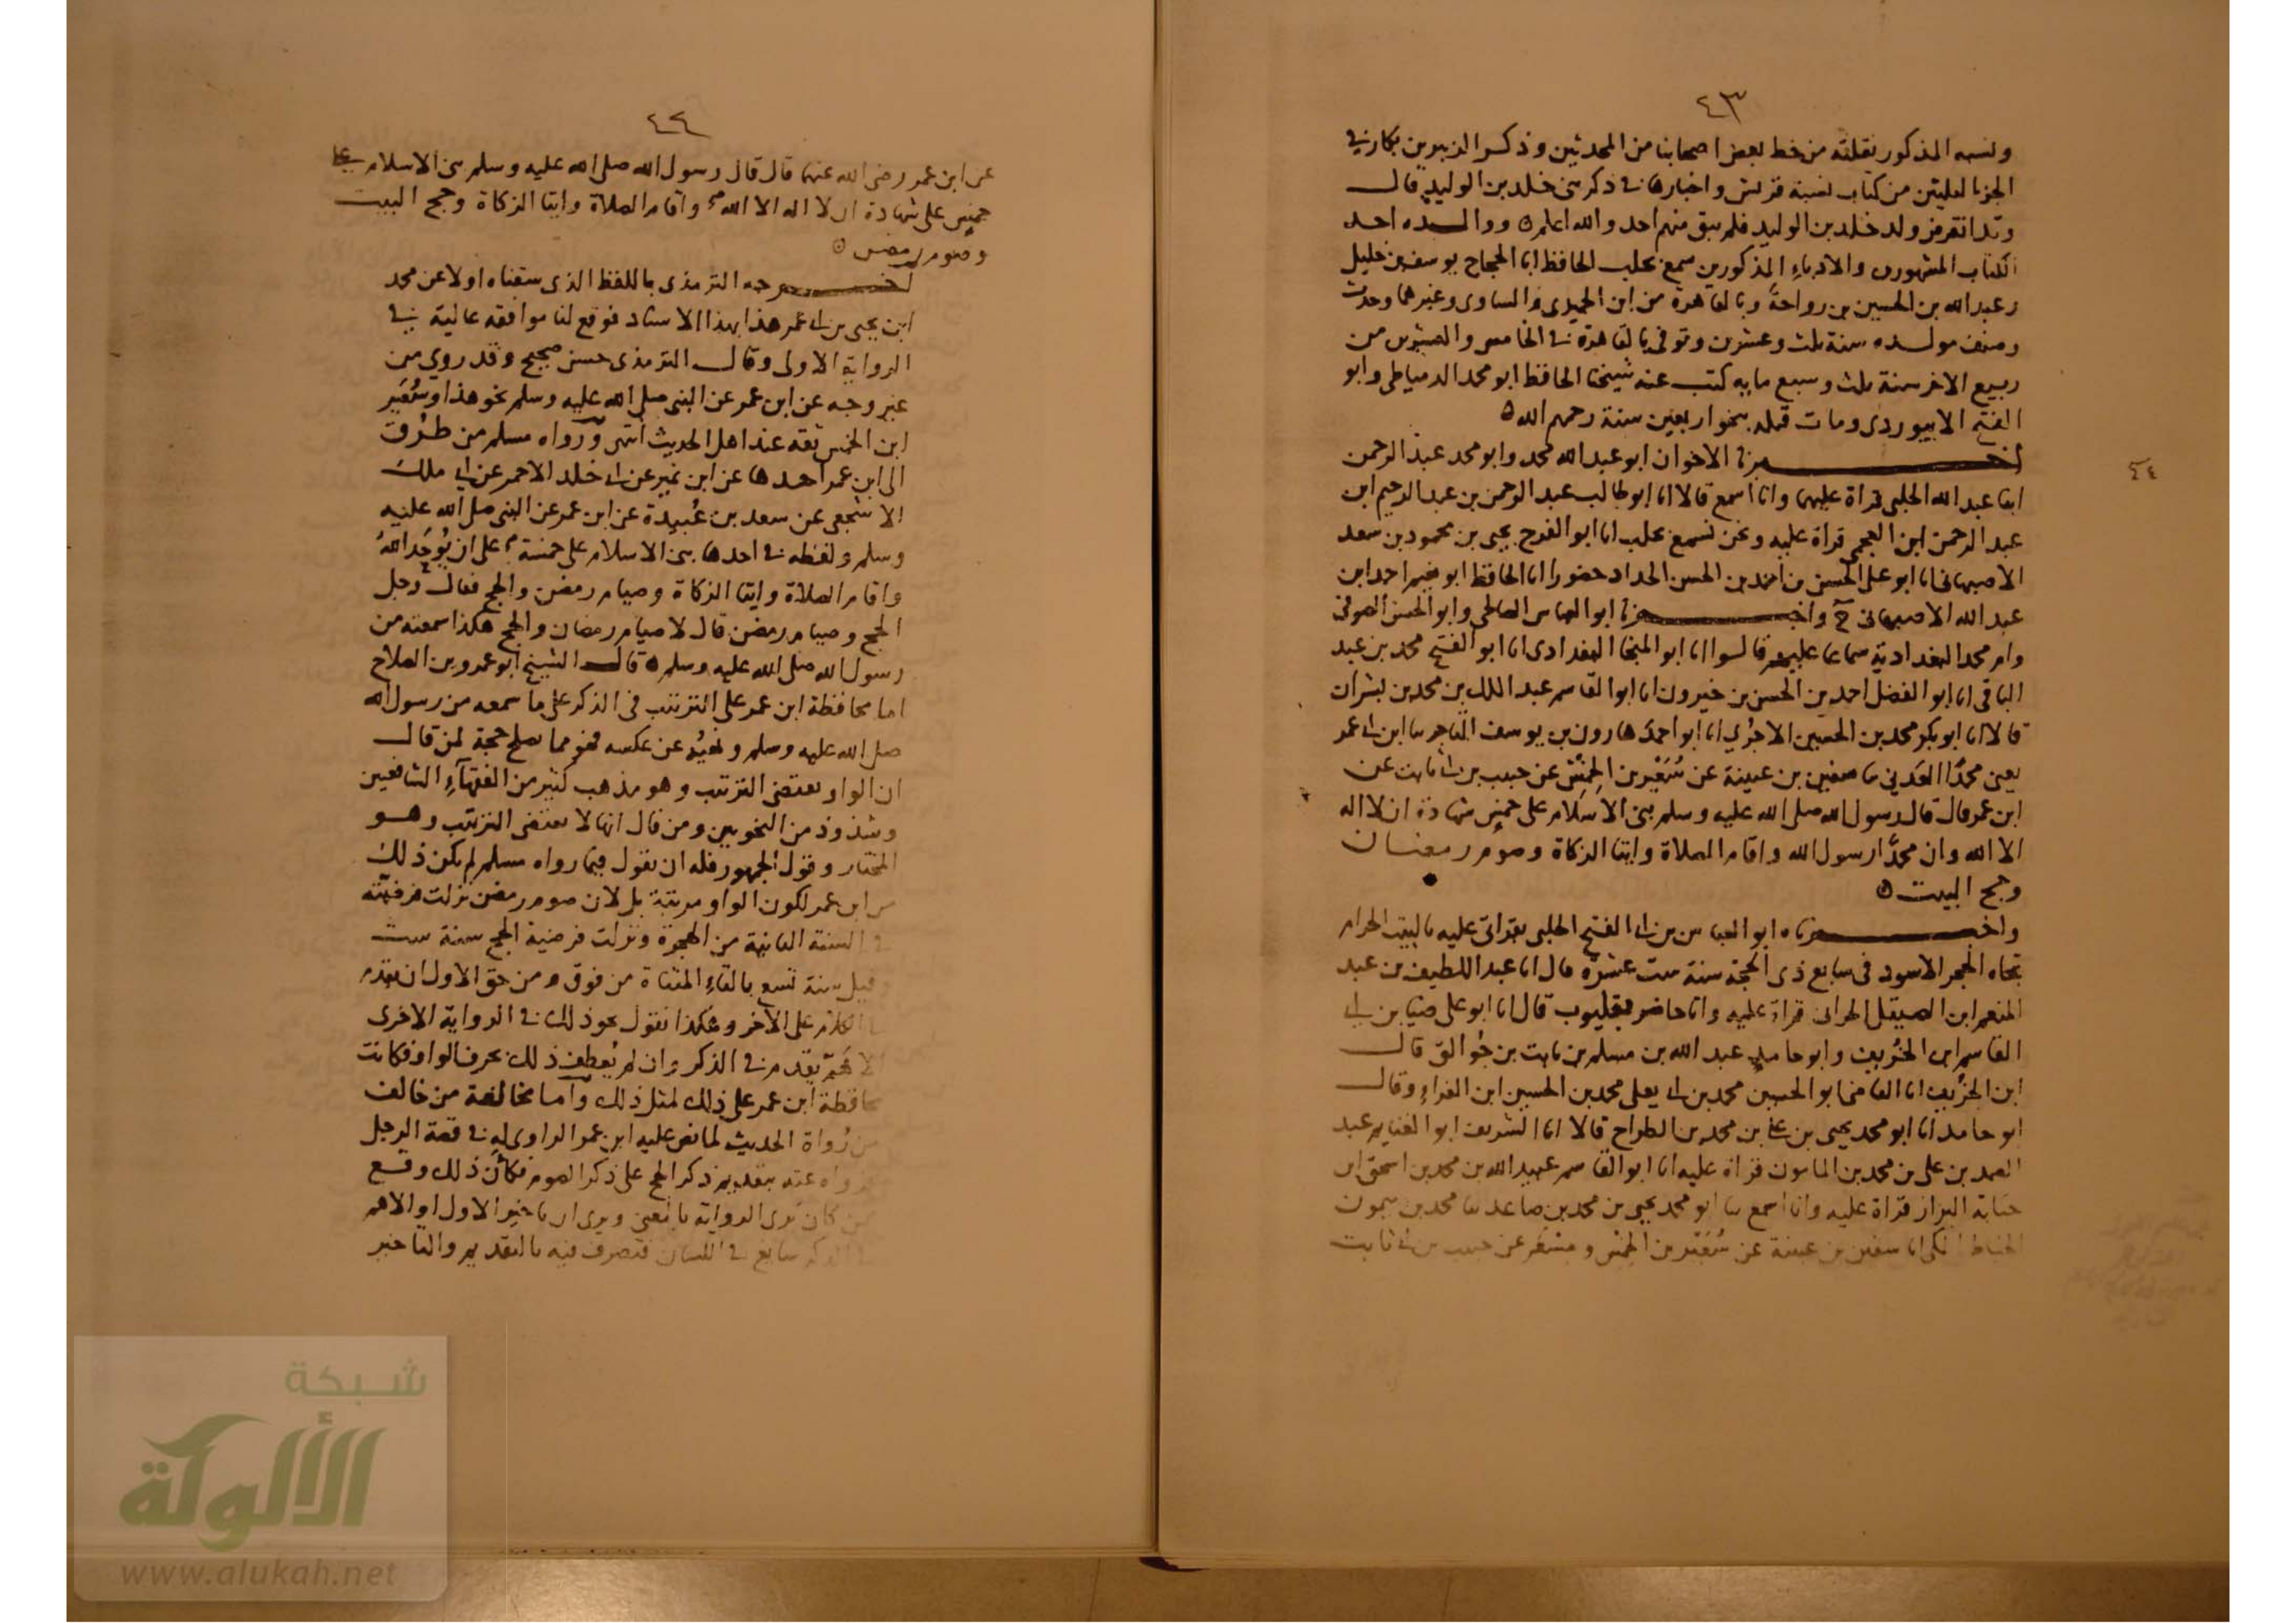 ٤٣
ونسبه المذكور نقلته من خط بعض اصحابنا من المحدثين وذكر الزبير بن بكار في
الجزء من كتاب نسبة قريش واخبارها في ذكر بني خلد بن الوليد قال
وقد انقرض ولد خلد بن الوليد فلم يبق منهم احد والله اعلم ه ووالده احد
الكتاب المشهورين والادباء المذكورين سمع بحلب الحافظ ابا الحجاج يوسف بن خليل
وعبد الله بن الحسين بن رواحة وبالقاهرة من ابن الجميزي والساوى وغيرهما وحدث
وصنف مولده سنة ثلث وعشرين وتوفي بالقاهرة في الخامس والعشرين من
ربيع الاخر سنة ثلث وسبع مايه كتب عنه شيخنا الحافظ ابو محمد الدمياطى وابو
الفتح الابيوردى ومات قبله بنحو اربعين سنة رحمهم الله ه
٤٤
اخبرنا الاخوان ابو عبد الله محمد وابو محمد عبد الرحمن
ابنا عبد الله الحلبى قراة عليهما وانا اسمع قالا انا ابو طالب عبد الرحمن بن عبد الرحيم ابن
عبد الرحمن ابن العجمى قراة عليه ونحن نسمع بحلب انا ابو الفرج يحيى بن محمود بن سعد
الاصبهانى انا ابو على الحسن بن احمد بن الحسن الحداد حضورا انا الحافظ ابو نعيم احمد ابن
عبد الله الاصبهانى ح واخبرنا ابو العباس الصالحى وابو الحسن الصوفى
وام محمد البغدادية سماعا عليهم قالوا انا ابو المنجا البغدادى انا ابو الفتح محمد بن عبد
الباقى انا ابو الفضل احمد بن الحسن بن خيرون انا ابو القاسم عبد الملك بن محمد بن بشران
قالا انا ابو بكر محمد بن الحسين الاجري انا ابو احمد هارون بن يوسف التاجر نا ابن ابى عمر
يعنى محمدا العدني نا سفين بن عيينة عن سُعَيْر بن الخمس عن حبيب بن ابى ثابت عن
ابن عمر قال قال رسول الله صلى الله عليه وسلم بنى الاسلام على خمس شهادة ان لا اله
الا الله وان محمدا رسول الله واقام الصلاة وايتا الزكاة وصوم رمضان
وحج البيت ه
واخبرناه ابو العباس بن ابى الفتح الحلبى بقراتى عليه بالبيت الحرام
تجاه الحجر الاسود فى سابع ذى الحجة سنة ست عشرة قال انا عبد اللطيف بن عبد
المنعم ابن الصيقل الحرانى قراة عليه وانا حاضر بقليوب قال انا ابو على ضيا بن ابى
القاسم ابن الخُرَيف وابو حامد عبد الله بن مسلم بن ثابت بن جُوالق قال
ابن الخُرَيف انا القاضى ابو الحسين محمد بن ابى يعلى محمد بن الحسين ابن الفراء وقال
ابو حامد انا ابو محمد يحيى بن على بن محمد بن الطراح قالا انا الشريف ابو الغنايم عبد
الصمد بن على بن محمد بن المامون قراة عليه انا ابو القاسم عبيد الله بن محمد بن اسحق ابن
حبابة البزاز قراة عليه وانا اسمع نا ابو محمد يحيى بن محمد بن صاعد نا محمد بن ميمون
الخياط المكى انا سفين بن عيينة عن سُعَيْر بن الخمس ومسعر عن حبيب بن ابى ثابت
٤٤
عن ابن عمر رضى الله عنهما قال قال رسول الله صلى الله عليه وسلم بنى الاسلام على
خمس على شهادة ان لا اله الا الله واقام الصلاة وايتا الزكاة وحج البيت
وصوم رمضن ه
اخرجه الترمذى باللفظ الذى سقناه اولا عن محمد
ابن يحيى بن ابى عمر هذا بهذا الاسناد فوقع لنا موافقه عالية فى
الرواية الاولى وقال الترمذى حسن صحيح وقد روي من
غير وجه عن ابن عمر عن النبى صلى الله عليه وسلم نحو هذا وسُعَير
ابن الخمس ثقه عند اهل الحديث انتهى ورواه مسلم من طرق
الى ابن عمر احدها عن ابن نمير عن ابى خلد الاحمر عن ابى ملك
الاشجعى عن سعد بن عُبيدة عن ابن عمر عن النبى صلى الله عليه
وسلم ولفظه فى احدها بنى الاسلام على خمسة على ان يُوَحَّد اللهُ
واقام الصلاة وايتا الزكاة وصيام رمضن والحج فقال رجل
الحج وصيام رمضن قال لا صيام رمضان والحج هكذا سمعته من
رسول الله صلى الله عليه وسلم ه قال الشيخ ابو عمرو بن الصلاح
اما محافظة ابن عمر على الترتيب فى الذكر على ما سمعه من رسول الله
صلى الله عليه وسلم ونهيُه عن عكسه فهو مما يصلح حجة لمن قال
ان الواو تقتضى الترتيب وهو مذهب كثير من الفقهاء الشافعيين
وشذوذ من النحويين ومن قال انها لا تقتضى الترتيب وهو
المختار وقول الجمهور فله ان يقول فيما رواه مسلم لم يكن ذلك
من ابن عمر لكون الواو مرتبة بل لان صوم رمضن نزلت فرضيته
فى السنة الثانية من الهجرة ونزلت فرضية الحج سنة ست
وقيل سنة تسع بالتاء المثناة من فوق ومن حق الاول ان يقدم
فى الكلام على الاخر وهكذا نقول نحو ذلك فى الرواية الاخرى
يقدم فى الذكر وان لم يُعطف ذلك بحرف الواو فكانت
محافظة ابن عمر على ذلك لمثل ذلك واما مخالفة من خالف
من رُواة الحديث لما نص عليه ابن عمر الراوى له فى قصة الرجل
فرواه عنه بتقديم ذكر الحج على ذكر الصوم فكأن ذلك وقع
ممن كان يرى الرواية بالمعنى ويرى ان تاخير الاول او الاهم
فى الذكر سايع فى اللسان فتصرف فيه بالتقديم والتاخير
شبكة
الألوكة
www.alukah.net